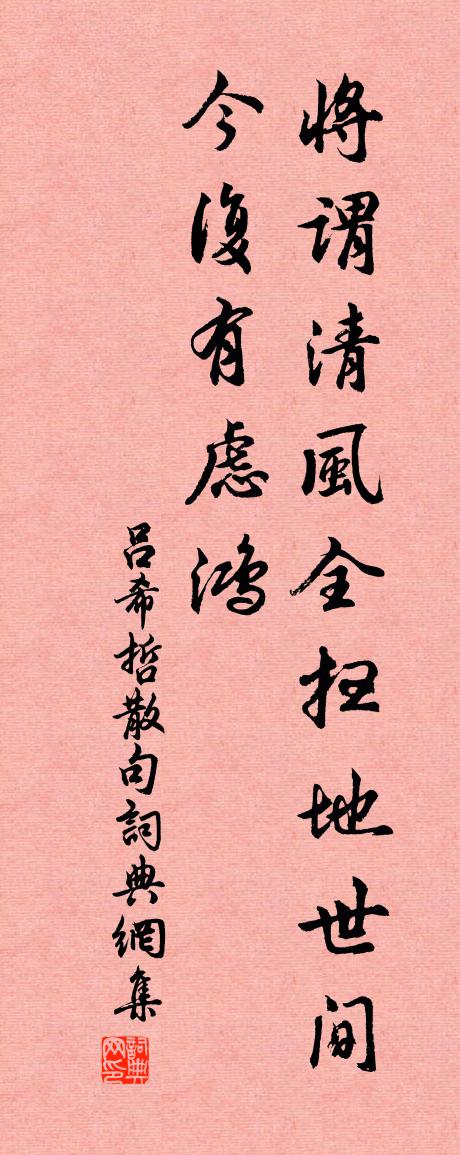 將謂清風全掃地世間
今復有慮鴻
呂希哲散句詞典網集
詞典网印